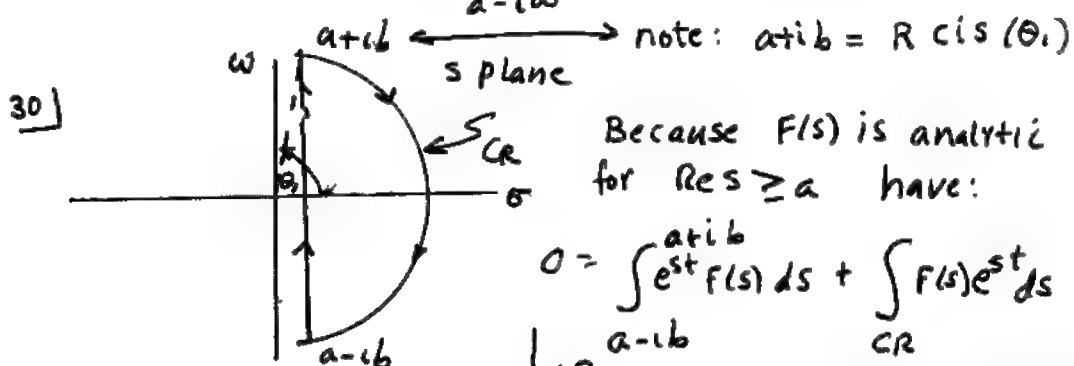 a-iω
a+ib ⟷ note: a+ib = R cis (θ₁)
ω
s plane
30]
CR
Because F(s) is analytic
for Re s ≥ a have:
θ₁
σ
0 = ∫_{a-ib}^{a+ib} e^{st} F(s) ds + ∫_{CR} F(s)e^{st} ds
a-ib